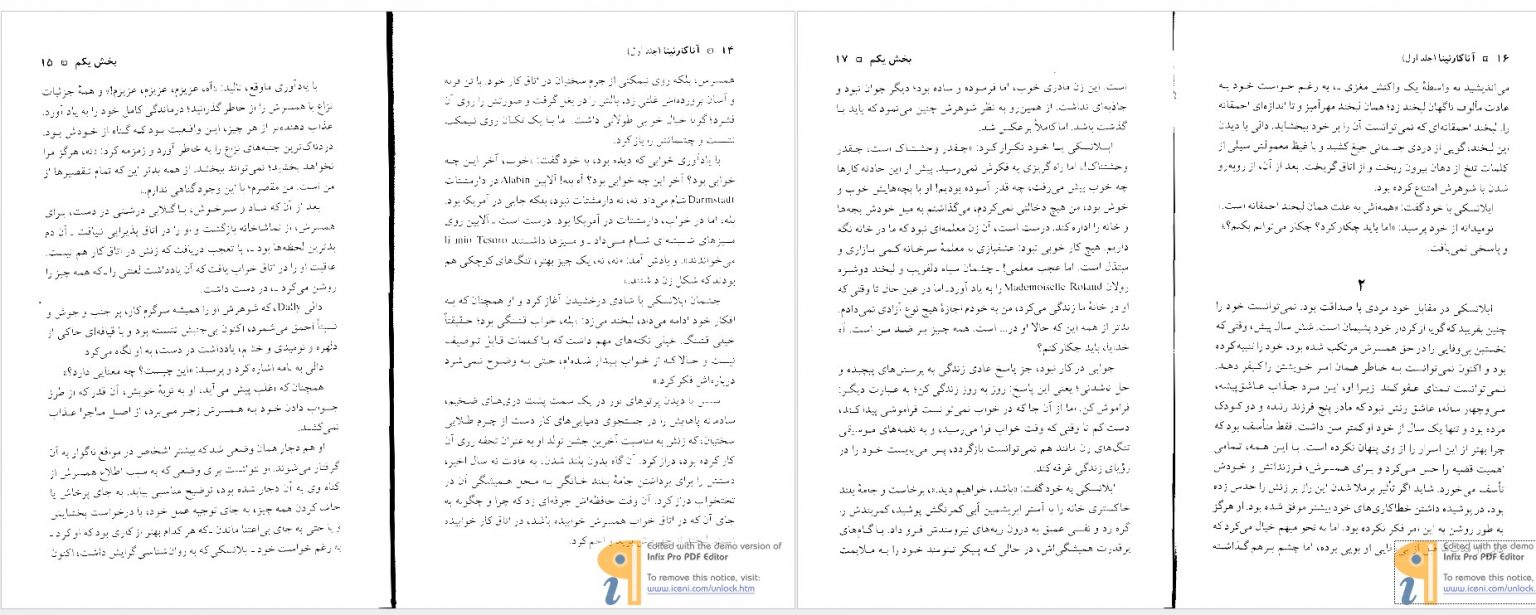 ۱۴ ▫ آناکارنینا (جلد اول)
همسرش، بلکه روی نیمکتی از چرم سختیان در اتاق کار خود. با تن فربه
و آسان پرورده‌اش غلتی زد، بالش را در بغل گرفت و صورتش را روی آن
فشرد؛ گویا خیال خوابی طولانی داشت. اما با یک تکان روی نیمکت
نشست و چشمانش را باز کرد.
با یادآوری خوابی که دیده بود، به خود گفت: «خوب، آخر این چه
خوابی بود؟ آخر این چه خوابی بود؟ آه بله! آلابین Alabin در دارمشتات
Darmstadt شام می‌داد. نه، نه دارمشتات نبود، بلکه جایی در آمریکا بود.
بله، اما در خواب، دارمشتات در آمریکا بود. درست است ـ آلابین روی
میزهای شیشه‌ای شام می‌داد ـ و میزها داشتند Il mio Tesoro
می‌خواندند». و یادش آمد: «نه، نه، یک چیز بهتر، تنگ‌های کوچکی هم
بودند که شکل زن داشتند.»
چشمان ابلانسکی با شادی درخشیدن آغاز کرد و او همچنان که به
افکار خود ادامه می‌داد، لبخند می‌زد: «بله، خواب قشنگی بود؛ حقیقتاً
خیلی قشنگ. خیلی نکته‌های مهم داشت که با کلمات قابل توصیف
نیست و حالا که از خواب بیدار شده‌ام، حتی به وضوح نمی‌شود
درباره‌اش فکر کرد.»
سپس با دیدن پرتوهای نور در یک سمت پشت دری‌های ضخیم،
شادمانه پاهایش را در جستجوی دمپایی‌های کار دست از چرم طلایی
سختیان، که زنش به مناسبت آخرین جشن تولد او به عنوان تحفه روی آن
کار کرده بود، دراز کرد. آن گاه بدون بلند شدن، به عادت نه سال اخیر،
دستش را برای برداشتن جامهٔ بلند خانگی به محل همیشگی آن در
تختخواب دراز کرد. آن وقت حافظه‌اش جرقه‌ای زد که چرا و چگونه به
جای آن که در اتاق خواب همسرش خوابیده باشد، در اتاق کار خوابیده
کرد.
بخش یکم ▫ ۱۵
با یادآوری ماوقع، نالید: «آه، عزیزم، عزیزم، عزیزم!» و همهٔ جزئیات
نزاع با همسرش را از خاطر گذرانید؛ درماندگی کامل خود را به یاد آورد.
عذاب دهنده‌تر از هر چیز، این واقعیت بود که گناه از خودش بود.
دردناک‌ترین جنبه‌های نزاع را به خاطر آورد و زمزمه کرد: «نه، هرگز مرا
نخواهد بخشید؛ نمی‌تواند ببخشد. از همه بدتر این که تمام تقصیرها از
من است. من مقصرم؛ با این وجود گناهی ندارم.»
بعد از آن که شاد و سرخوش، با گلابی درشتی در دست، برای
همسرش، از تماشاخانه بازگشت و او را در اتاق پذیرایی نیافت ـ آن دم
بدترین لحظه‌ها بود ـ، با تعجب دریافت که زنش در اتاق کار هم نیست.
عاقبت او را در اتاق خواب یافت که آن یادداشت لعنتی را ـ که همه چیز را
روشن می‌کرد ـ، در دست داشت.
دالی Dally، که شوهرش او را همیشه سرگرم کار، پر جنب و جوش و
نسبتاً احمق می‌شمرد، اکنون بی‌جنبش نشسته بود و با قیافه‌ای حاکی از
دلهره و نومیدی و خشم، یادداشت در دست، به او نگاه می‌کرد
دالی به نامه اشاره کرد و پرسید: «این چیست؟ چه معنایی دارد؟»
همچنان که اغلب پیش می‌آید، او به نوبهٔ خویش، آن قدر که از طرز
جواب دادن خود به همسرش زجر می‌برد، از اصل ماجرا عذاب
نمی‌کشید.
او هم دچار همان وضعی شد که بیشتر اشخاص در مواقع ناگوار به آن
گرفتار می‌شوند. او نتوانست برای وضعی که به سبب اطلاع همسرش از
گناه وی به آن دچار شده بود، توضیح مناسبی بیابد. به جای پرخاش یا
حاشا کردن همه چیز، به جای توجیه عمل خود، یا درخواست بخشایش
و یا حتی به جای بی‌اعتنا ماندن ـ که هر کدام بهتر از کاری بود که او کرد ـ
به رغم خواست خود ـ ابلانسکی که به روان‌شناسی گرایش داشت، اکنون
۱۶ ▫ آناکارنینا (جلد اول)
می‌اندیشید به واسطهٔ یک واکنش مغزی ـ، به رغم خواست خود به
عادت مألوف ناگهان لبخند زد؛ همان لبخند مهرآمیز و تا اندازه‌ای احمقانه
را. لبخند احمقانه‌ای که نمی‌توانست آن را بر خود ببخشاید. دالی با دیدن
این لبخند، گویی از دردی جسمانی جیغ کشید و با غیظ معمولش سیلی از
کلمات تلخ از دهان بیرون ریخت و از اتاق گریخت. بعد از آن، از روبه‌رو
شدن با شوهرش امتناع کرده بود.
ابلانسکی با خود گفت: «همه‌اش به علت همان لبخند احمقانه است.
نومیدانه از خود پرسید: «اما باید چکار کرد؟ چکار می‌توانم بکنم؟»؛
و پاسخی نمی‌یافت.
۲
ابلانسکی در مقابل خود مردی با صداقت بود. نمی‌توانست خود را
چنین بفریبد که گویا از کردار خود پشیمان است. شش سال پیش، وقتی که
نخستین بی‌وفایی را در حق همسرش مرتکب شده بود، خود را تنبیه کرده
بود و اکنون نمی‌توانست به خاطر همان امر خویشتن را کیفر دهد.
نمی‌توانست تمنای عفو کند زیرا او، این مرد جذاب عاشق‌پیشه،
سی‌وچهار ساله، عاشق زنش نبود که مادر پنج فرزند زنده و دو کودک
مرده بود و تنها یک سال از خود او کمتر سن داشت. فقط متأسف بود که
چرا بهتر از این اسرار را از وی پنهان نکرده است. با این همه، تمامی
اهمیت قضیه را حس می‌کرد و برای همسرش، فرزندانش و خودش
تأسف می‌خورد. شاید اگر تأثیر برملا شدن این راز بر زنش را حدس زده
بود، در پوشیده داشتن خطاکاری‌های خود بیشتر موفق شده بود. او هرگز
به طور روشن به این امر فکر نکرده بود. اما به نحو مبهم خیال می‌کرد که
قبل از بی‌وفایی او بویی برده، اما چشم بر هم گذاشته
بخش یکم ▫ ۱۷
است. این زن مادری خوب، اما فرسوده و ساده بود؛ دیگر جوان نبود و
جاذبه‌ای نداشت. از همین رو به نظر شوهرش چنین می‌نمود که باید با
گذشت باشد. اما کاملاً برعکس شد.
ابلانسکی با خود تکرار کرد: «چقدر وحشتناک است، چقدر
وحشتناک!»، اما راه گریزی به فکرش نمی‌رسید. پیش از این حادثه کارها
چه خوب پیش می‌رفت، چقدر آسوده بودیم! او با بچه‌هایش خوب و
خوش بود، من هیچ دخالتی نمی‌کردم، می‌گذاشتم به میل خودش بچه‌ها
و خانه را اداره کند. درست است، آن زن معلمه‌ای نبود که ما در خانه نگه
داریم. هیچ کار خوبی نبود: عشقبازی به معلمهٔ سرخانه کمی بازاری و
مبتذل است. اما عجب معلمی! ـ چشمان سیاه دلفریب و لبخند دوشیزه
رولان Mademoiselle Roland را به یاد آورد ـ اما در عین حال تا وقتی که
او در خانهٔ ما زندگی می‌کرد، من به خودم اجازهٔ هیچ نوع آزادی نمی‌دادم.
بدتر از همه این که حالا او در... است. همه چیز بر ضد من است. آه
خدایا، باید چکار کنم؟
جوابی در کار نبود، جز پاسخ عادی زندگی به پرسش‌های پیچیده و
حل نشدنی؛ یعنی این پاسخ: روز به روز زندگی کن؛ به عبارت دیگر:
فراموش کن. اما از آن جا که در خواب نمی‌توانست فراموشی پیدا کند،
دست کم تا وقتی که وقت خواب فرا می‌رسید، و به نغمه‌های موسیقی
تنگ‌های زن مانند هم نمی‌توانست بازگردد، پس می‌بایست خود را در
رؤیای زندگی غرقه کند.
ابلانسکی به خود گفت: «باشد، خواهیم دید.»، برخاست و جامهٔ بلند
خاکستری خانه را به آستر ابریشمین آبی کمرنگش پوشید، کمربندش را
گره زد و نفسی عمیق به درون ریه‌های نیرومندش فرو داد. با گام‌های
پرقدرت همیشگی‌اش، در حالی که پیکر تنومند خود را به ملایمت
Edited with the demo version of
Infix Pro PDF Editor
To remove this notice, visit:
www.iceni.com/unlock.htm
Edited with the demo
Infix Pro PDF Editor
To remove this notice,
www.iceni.com/unlock